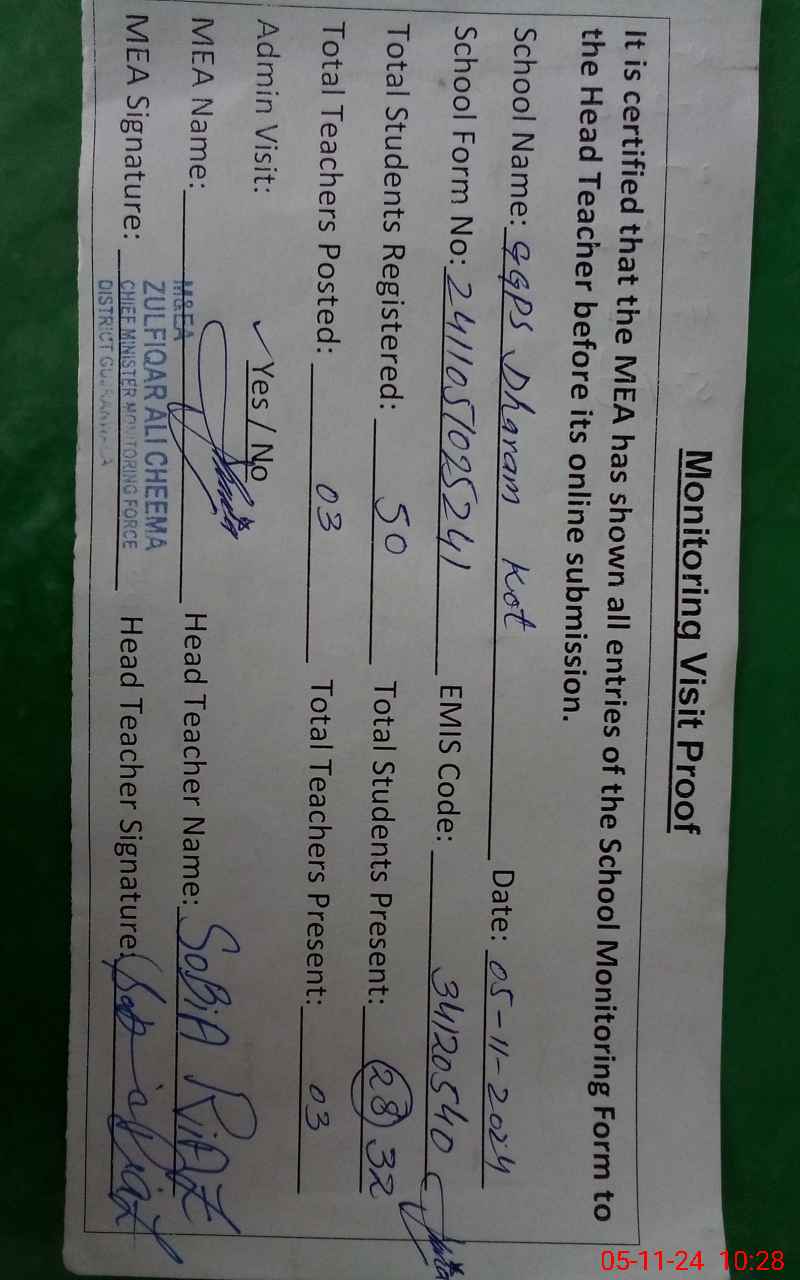 Monitoring Visit Proof
It is certified that the MEA has shown all entries of the School Monitoring Form to
the Head Teacher before its online submission.
School Name: GGPS Dharam Kot Date: 05-11-2024
School Form No: 2411051025241 EMIS Code: 34120540
Total Students Registered: 50 Total Students Present: 28 32
Total Teachers Posted: 03 Total Teachers Present: 03
Admin Visit: ✓ Yes / No
MEA Name: Head Teacher Name: SOBIA RIAZ
M&EA
ZULFIQAR ALI CHEEMA
MEA Signature: Head Teacher Signature:
CHIEF MINISTER MONITORING FORCE
DISTRICT GUJRANWALA
05-11-24 10:28